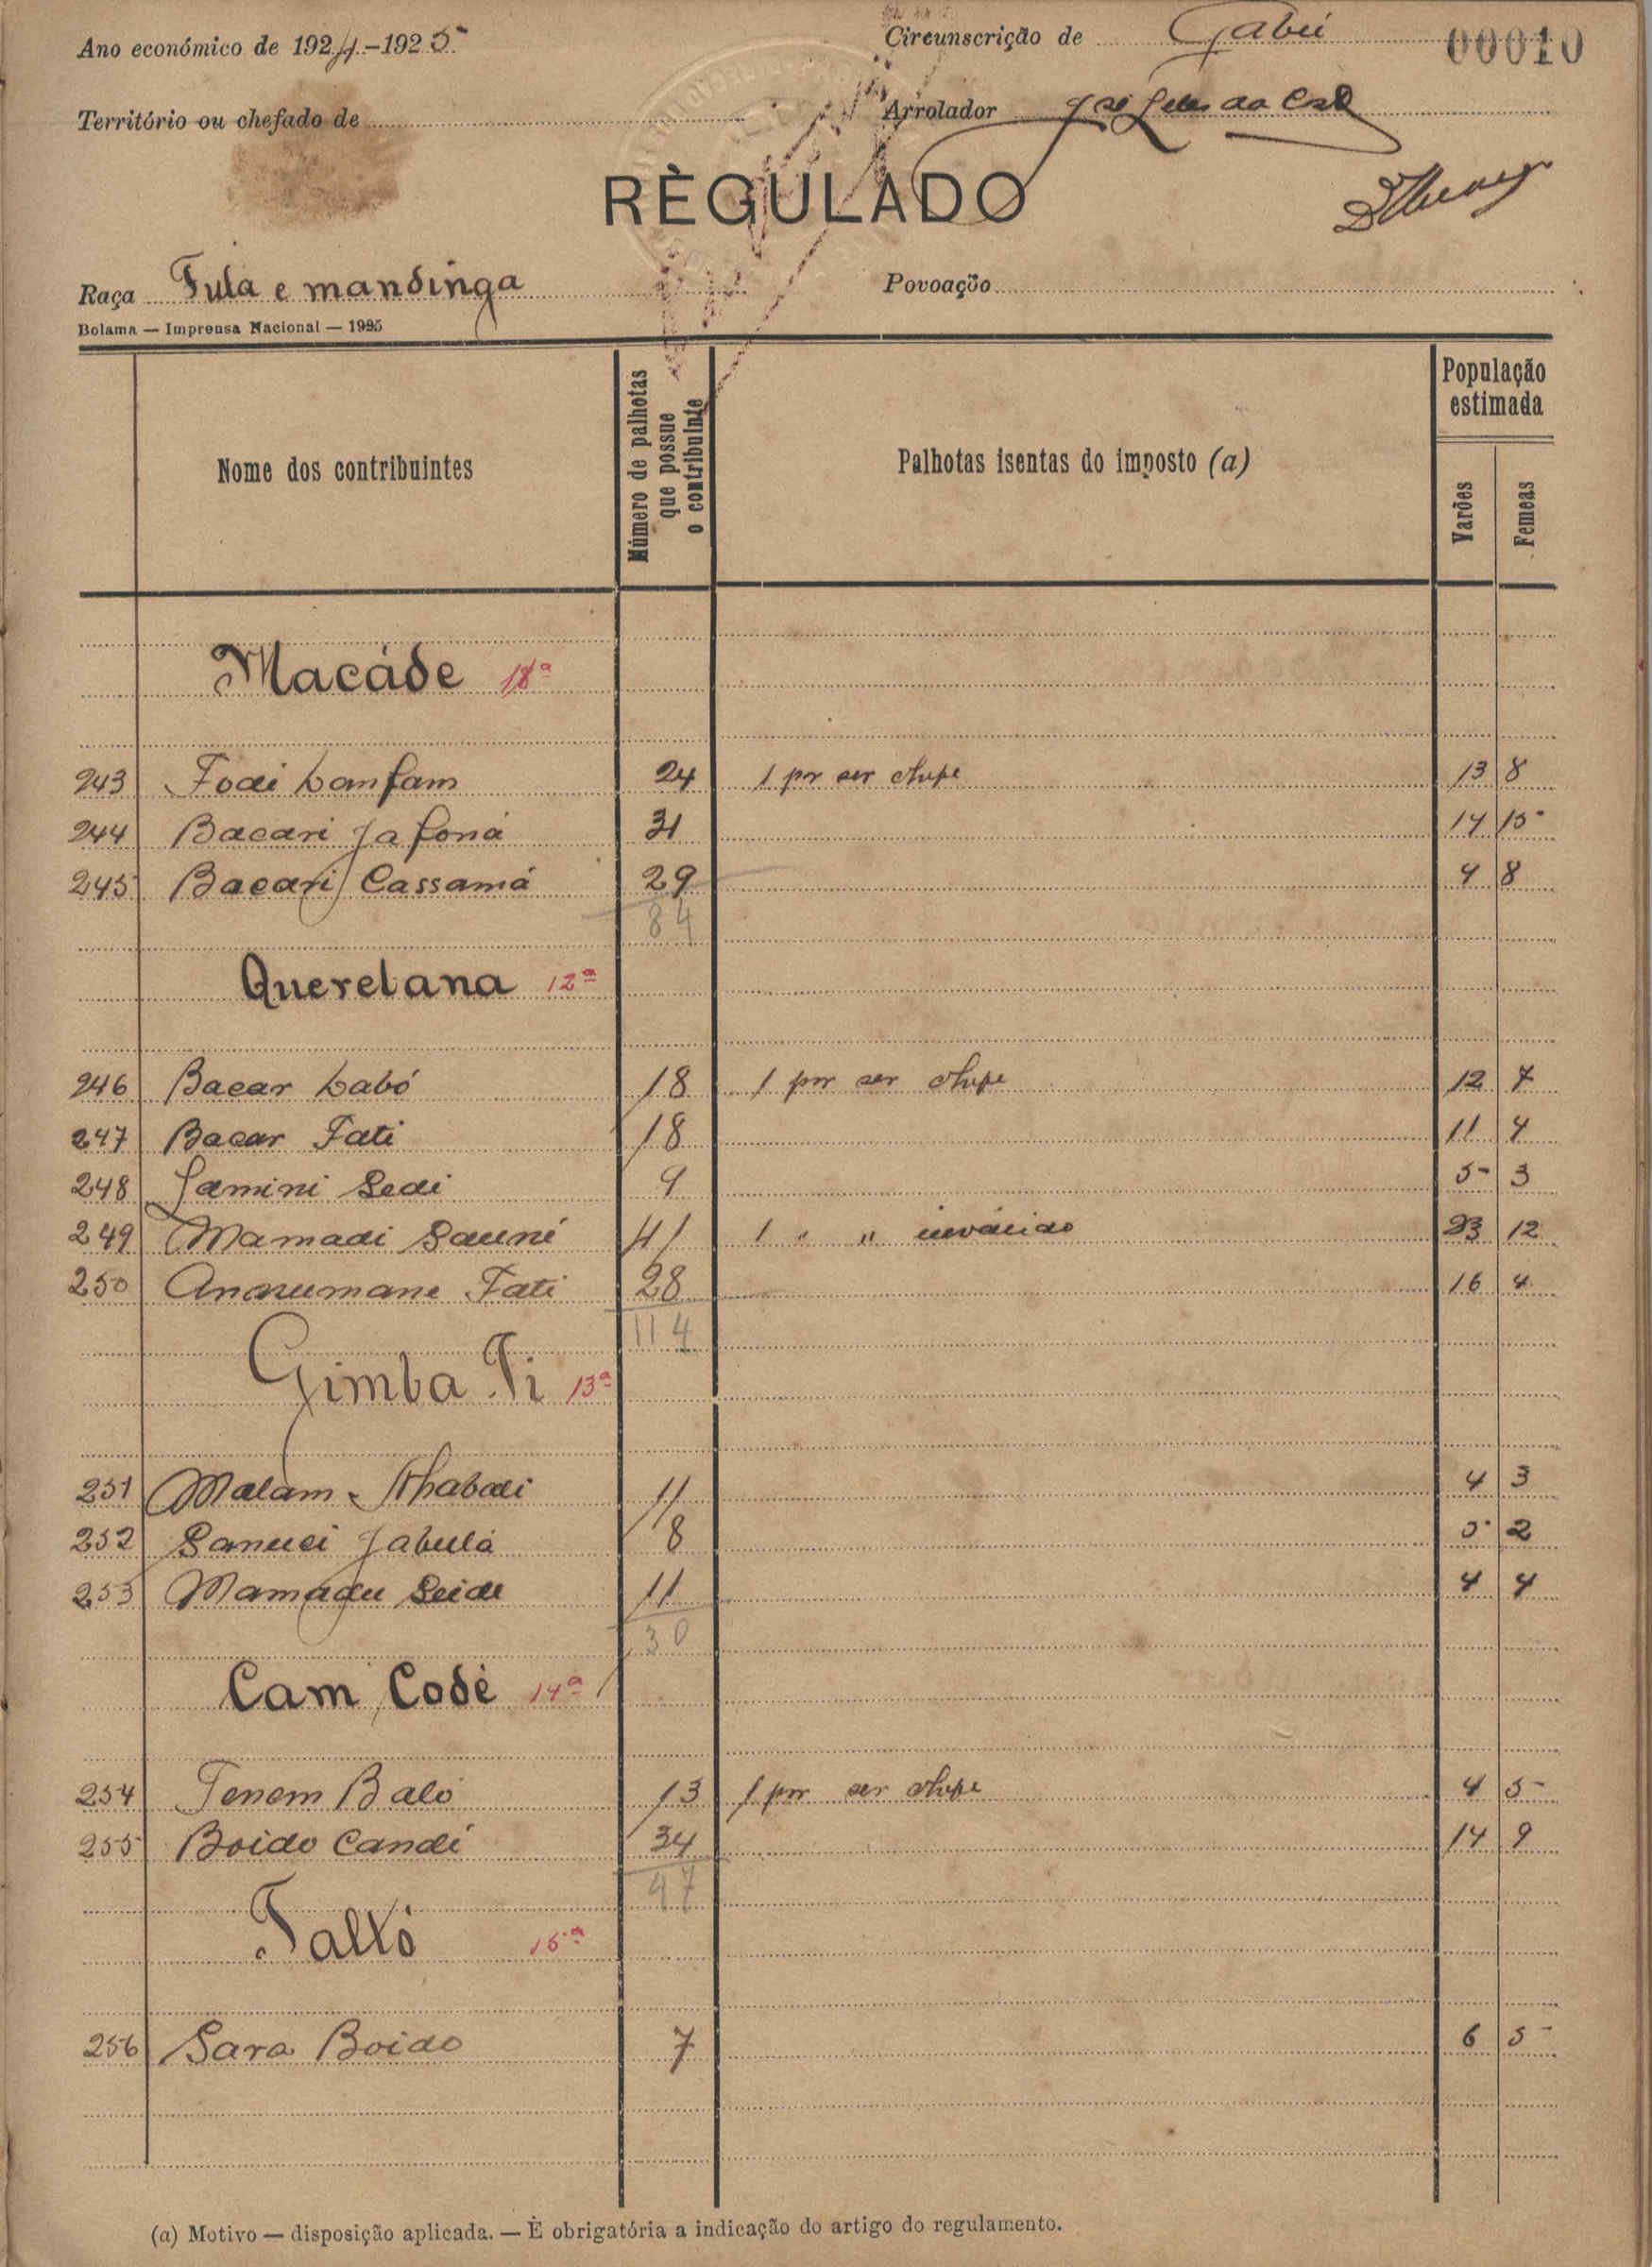 Ano económico de 1924-1925
Circunscrição de Gabú
00010
Território ou chefado de
Arrolador
RÈGULADO
Raça Fula e mandinga
Povoação
Bolama — Imprensa Nacional — 1925
Nome dos contribuintes
Número de palhotas que possue o contribuinte
Palhotas isentas do imposto (a)
População estimada
Varões
Femeas
Macáde 18ª
243 Fodi Lamfam 24 1 por ser chefe 13 8
244 Bacari Jafoná 31 14 15
245 Bacari Cassamá 29 4 8
84
Querelana 12ª
246 Bacar Labó 18 1 por ser chefe 12 7
247 Bacar Fati 18 11 4
248 Lamini Sedi 9 5 3
249 Mamadi Sauné 41 1 " " inválido 23 12
250 Andrumane Fati 28 16 4
114
Gimba Ti 13ª
251 Malam 11 4 3
252 Sanuci Jabulá 8 5 2
253 Mamadu Seide 11 4 4
30
Cam Codé 14ª
254 Tenem Baló 13 1 por ser chefe 4 5
255 Boido Candí 34 14 9
47
Taltó 15ª
256 Sara Boido 7 6 5
(a) Motivo — disposição aplicada. — È obrigatória a indicação do artigo do regulamento.